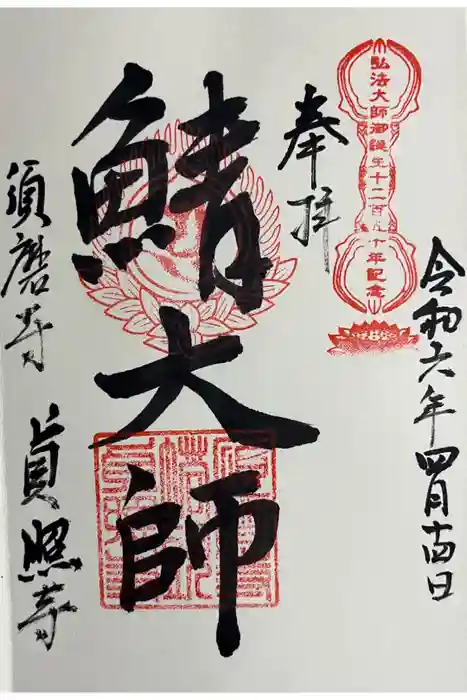 令和六年四月十四日
弘法大師御誕生千二百五十年記念
奉拝
鯖大師
須磨寺 貞照寺